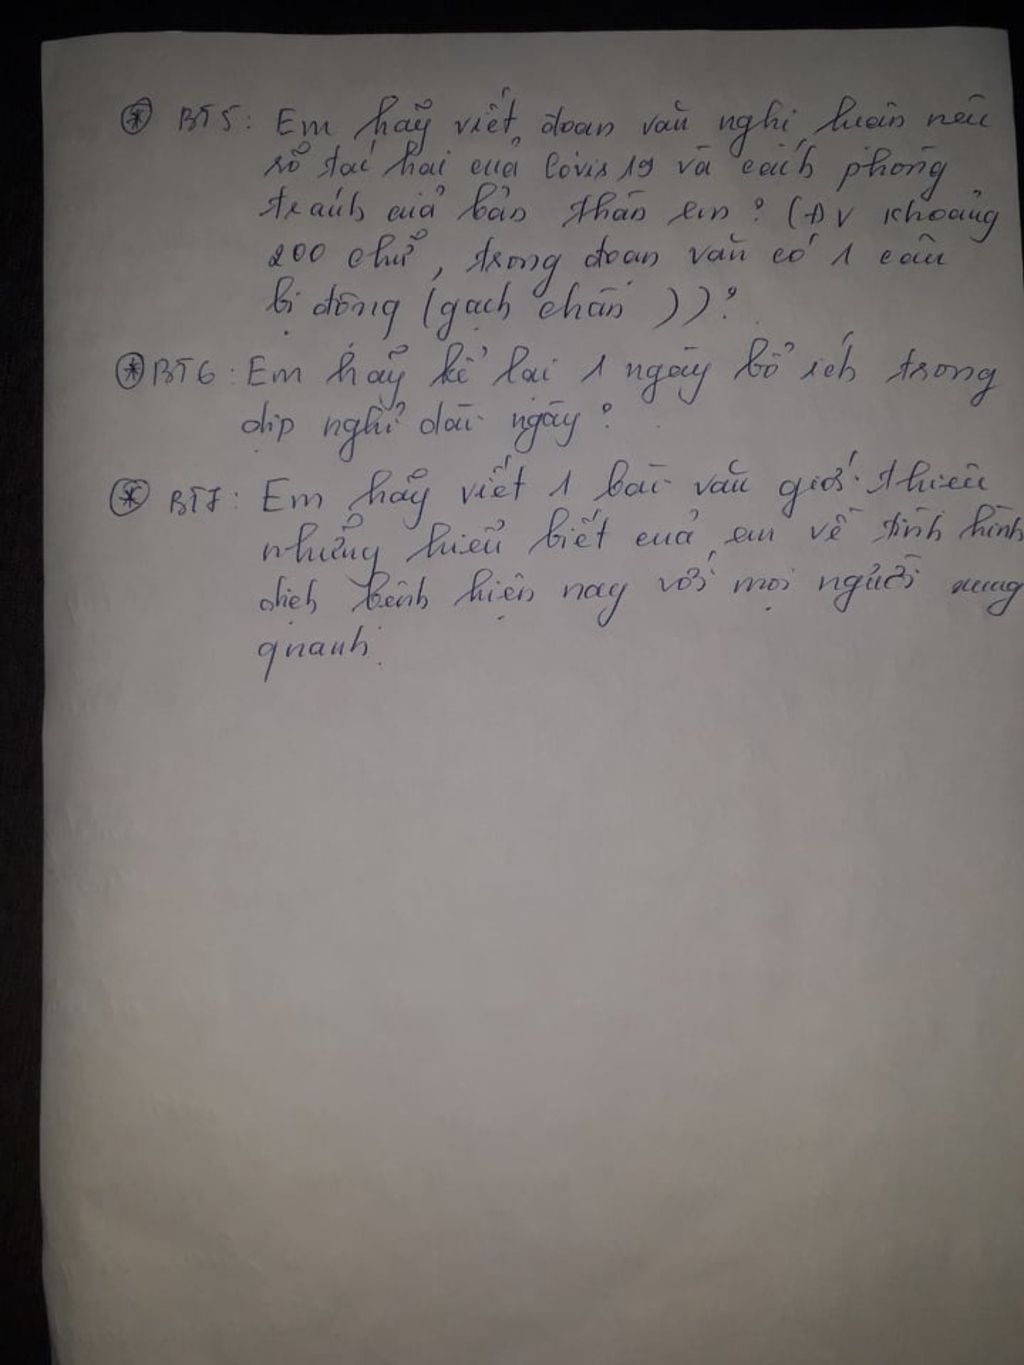 * BT5: Em hãy viết đoạn văn nghị luận nêu
rõ tác hại của Covis 19 và cách phòng
tránh của bản thân em? (ĐV khoảng
200 chữ, trong đoạn văn có 1 câu
bị động (gạch chân))?
* BT6: Em hãy kể lại 1 ngày bổ ích trong
dịp nghỉ dài ngày?
* BT7: Em hãy viết 1 bài văn giới thiệu
những hiểu biết của em về tình hình
dịch bệnh hiện nay với mọi người xung
quanh.